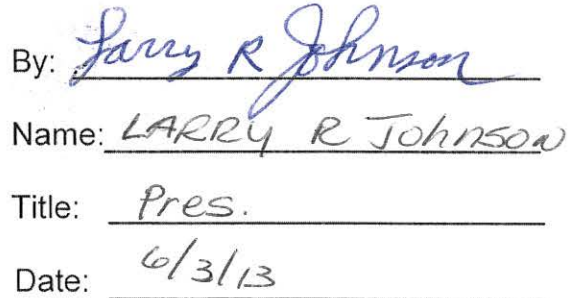 By: Larry R Johnson
Name: LARRY R JOHNSON
Title: Pres.
Date: 6/3/13